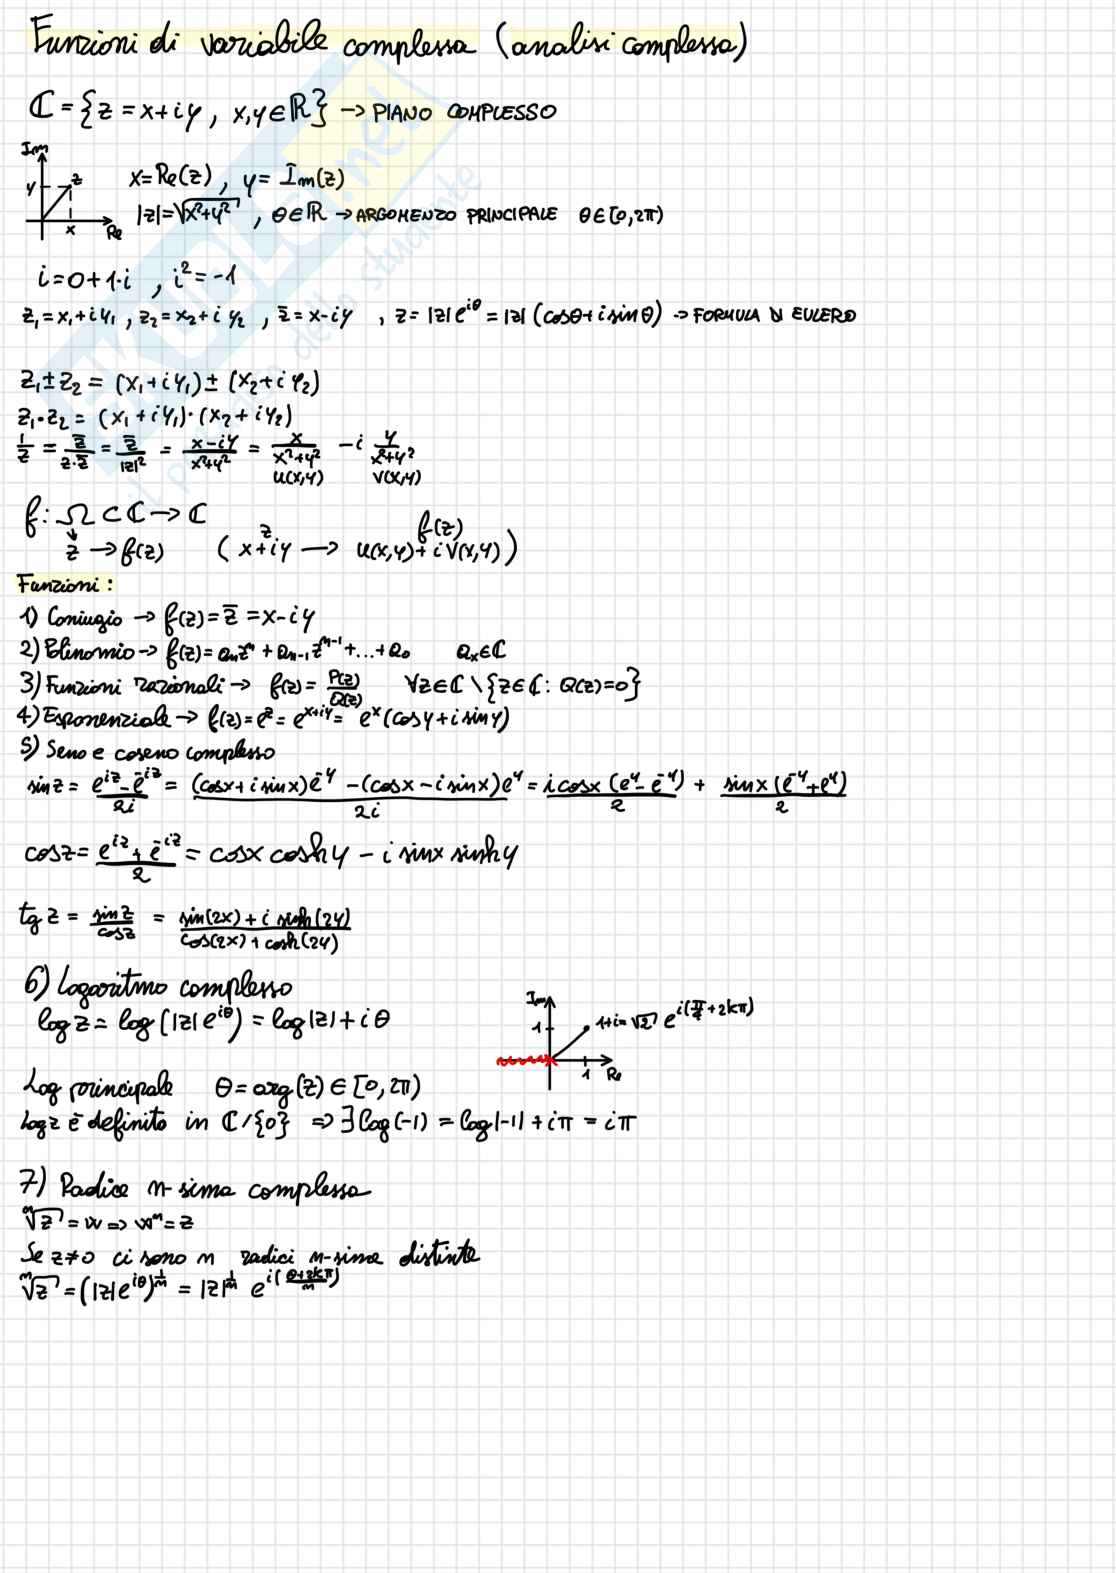 Funzioni di variabile complessa (analisi complessa)
ℂ = {z = x+iy , x,y ∈ ℝ} → PIANO COMPLESSO
Im
y z
x Re
x = Re(z) , y = Im(z)
|z| = √(x²+y²) , θ ∈ ℝ → ARGOMENZO PRINCIPALE θ ∈ [0,2π)
i = 0+1·i , i² = -1
z₁ = x₁+iy₁ , z₂ = x₂+iy₂ , z̄ = x-iy , z = |z|e^{iθ} = |z|(cosθ + i sinθ) → FORMULA DI EULERO
z₁ ± z₂ = (x₁+iy₁) ± (x₂+iy₂)
z₁·z₂ = (x₁+iy₁)·(x₂+iy₂)
1/z = z̄/(z·z̄) = z̄/|z|² = (x-iy)/(x²+y²) = x/(x²+y²) - i y/(x²+y²)
u(x,y) v(x,y)
f: Ω ⊂ ℂ → ℂ
z → f(z) ( x+iy → u(x,y) + i v(x,y) )
z f(z)
Funzioni :
1) Coniugio → f(z) = z̄ = x-iy
2) Polinomio → f(z) = aₙzⁿ + aₙ₋₁zⁿ⁻¹ + ... + a₀ aₖ ∈ ℂ
3) Funzioni razionali → f(z) = P(z)/Q(z) ∀z ∈ ℂ \ {z ∈ ℂ : Q(z) = 0}
4) Esponenziale → f(z) = e^z = e^{x+iy} = e^x (cos y + i sin y)
5) Seno e coseno complesso
sin z = (e^{iz} - e^{-iz})/2i = ((cosx + i sinx)e^{-y} - (cosx - i sinx)e^y)/2i = i cosx (e^y - e^{-y})/2 + sinx (e^{-y} + e^y)/2
cos z = (e^{iz} + e^{-iz})/2 = cosx cosh y - i sinx sinh y
tg z = sin z/cos z = (sin(2x) + i sinh(2y))/(cos(2x) + cosh(2y))
6) Logaritmo complesso
log z = log (|z| e^{iθ}) = log|z| + iθ
Im
1 1+i = √2 e^{i(π/4 + 2kπ)}
1 Re
Log principale θ = arg(z) ∈ [0,2π)
Log z è definito in ℂ/{0} ⇒ ∃ log(-1) = log|-1| + iπ = iπ
7) Radice n-sima complessa
ⁿ√z = w ⇒ wⁿ = z
Se z≠0 ci sono n radici n-sime distinte
ⁿ√z = (|z|e^{iθ})^{1/n} = |z|^{1/n} e^{i((θ+2kπ)/n)}
SKUOLA.net
il portale dello studente